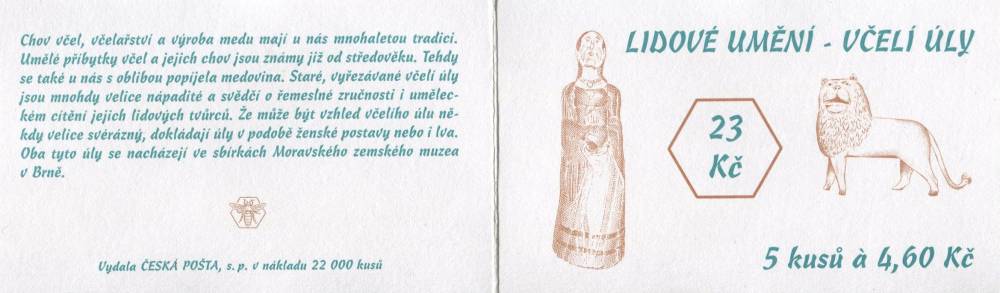 Chov včel, včelařství a výroba medu mají u nás mnohaletou tradici.
Umělé příbytky včel a jejich chov jsou známy již od středověku. Tehdy
se také u nás s oblibou popíjela medovina. Staré, vyřezávané včelí úly
jsou mnohdy velice nápadité a svědčí o řemeslné zručnosti i umělec-
kém cítění jejich lidových tvůrců. Že může být vzhled včelího úlu ně-
kdy velice svérázný, dokládají úly v podobě ženské postavy nebo i lva.
Oba tyto úly se nacházejí ve sbírkách Moravského zemského muzea
v Brně.
Vydala ČESKÁ POŠTA, s. p. v nákladu 22 000 kusů
LIDOVÉ UMĚNÍ - VČELÍ ÚLY
23
Kč
5 kusů à 4,60 Kč